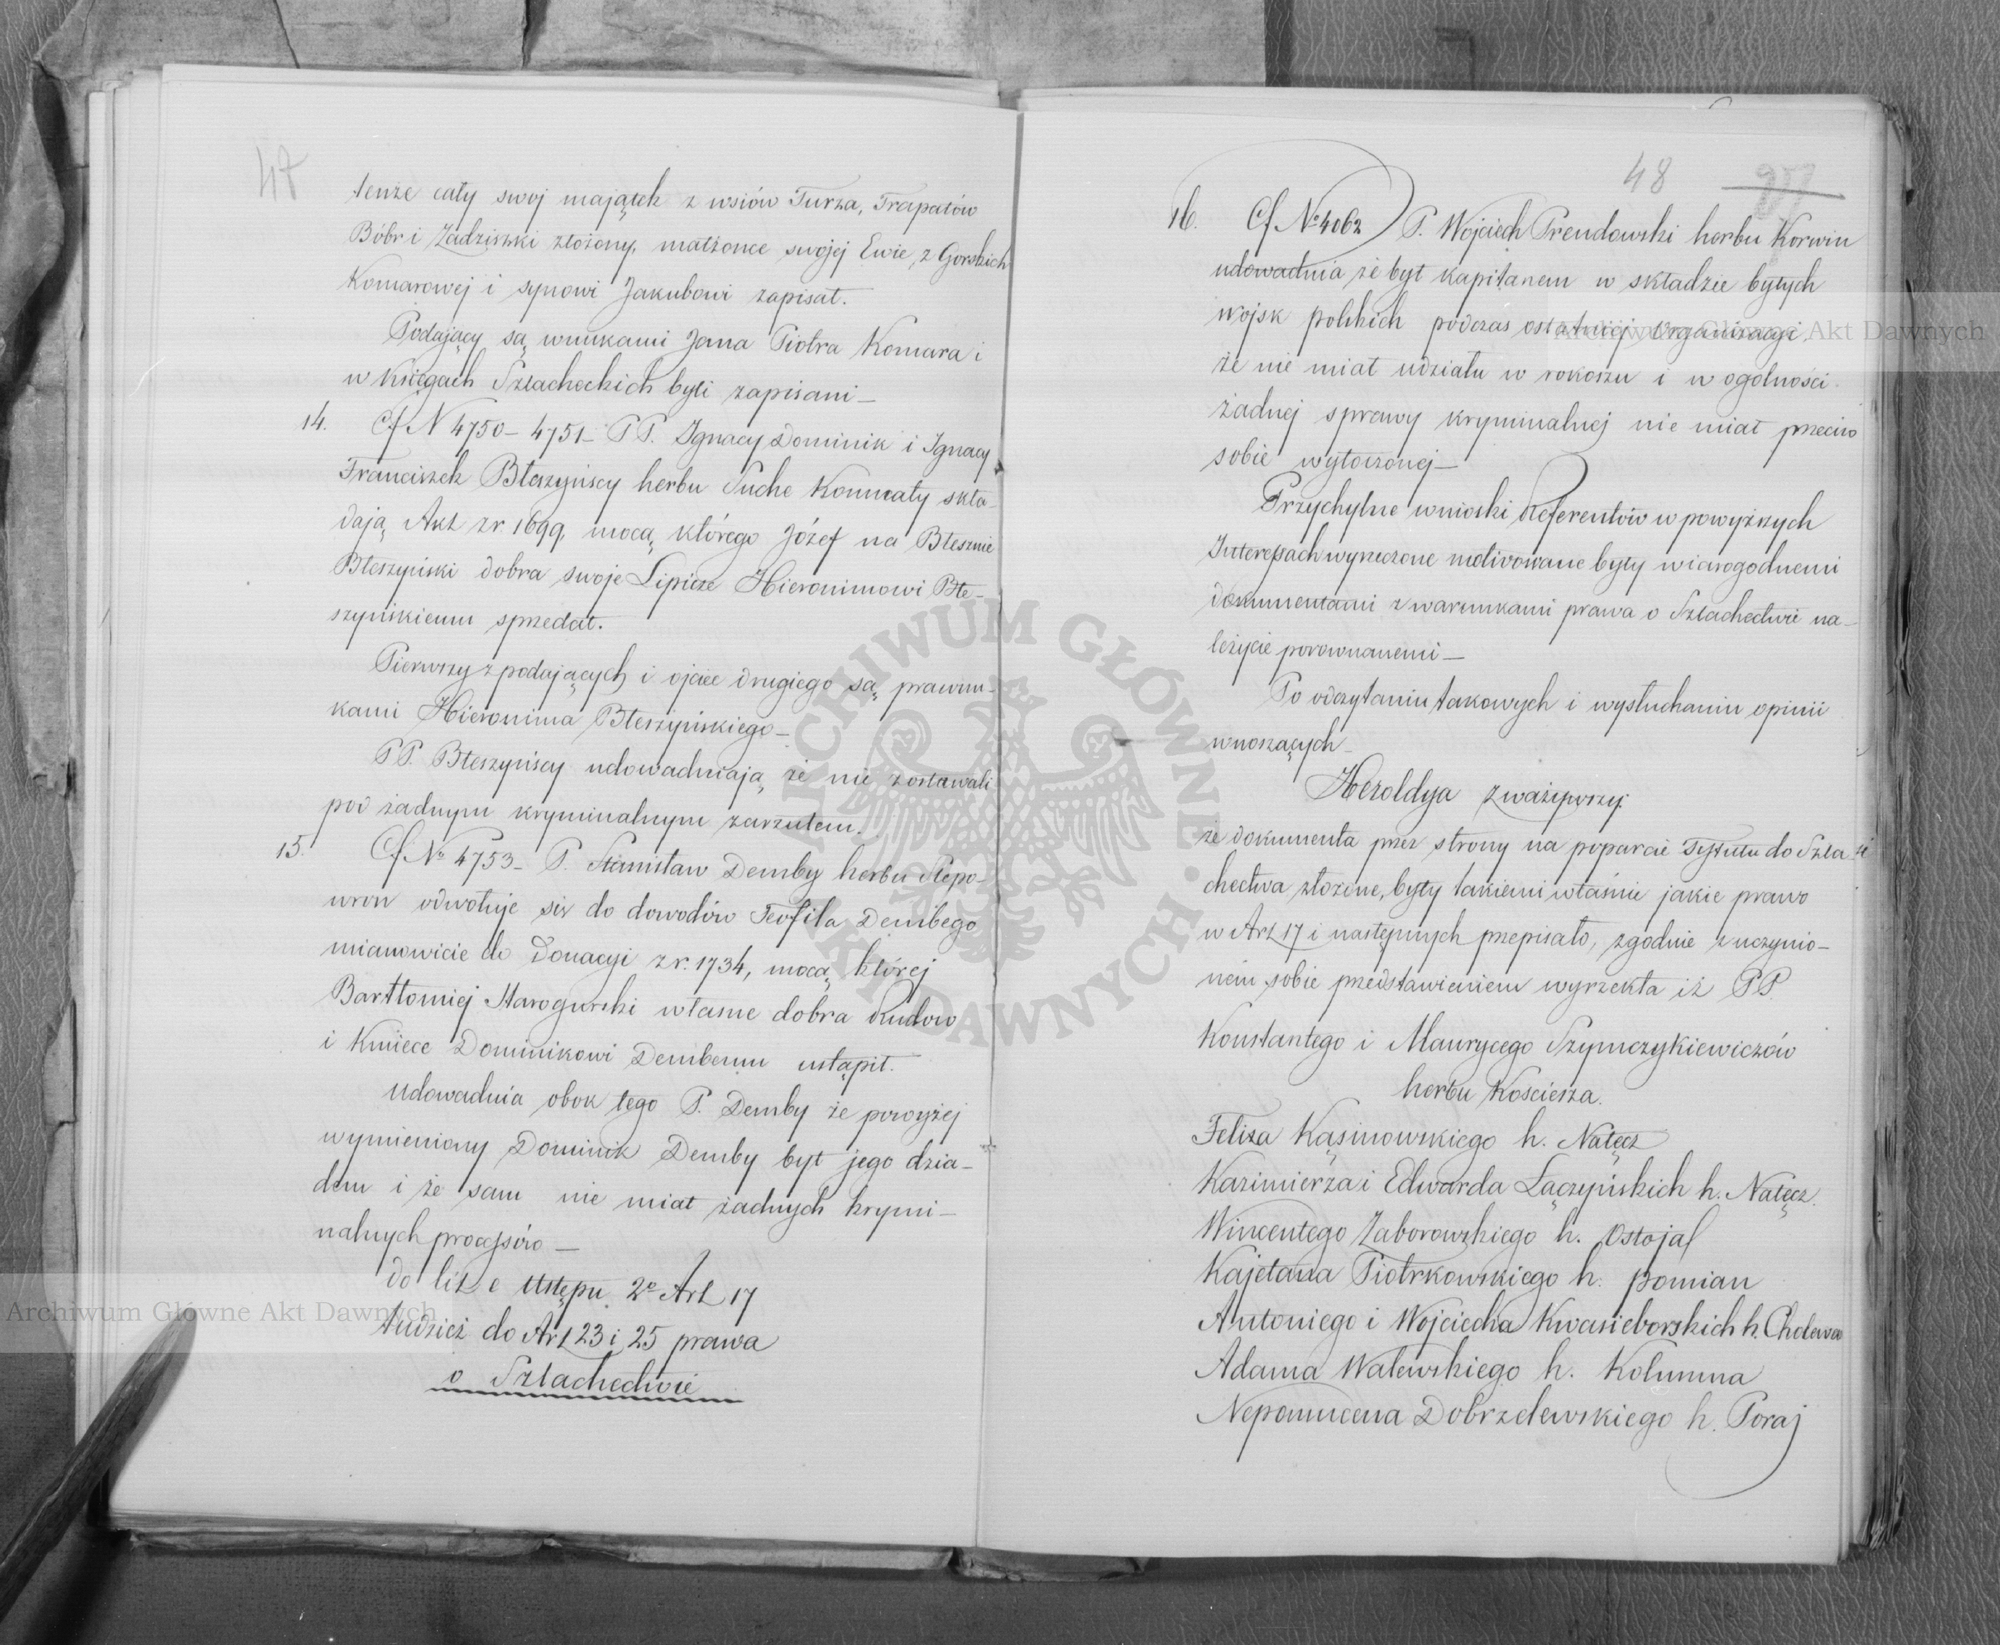 47
tenże cały swoj majątek z wsiów Turza, Trapatów
Bóbr i Zadziszki złożony, małżonce swojej Ewie, z Gorskich
Komarowej i synowi Jakubowi zapisał.
Podający są wnukami Jana Piotra Komara i
w Księgach Szlacheckich byli zapisani —
14. Cf N 4750 – 4751 – PP. Ignacy Dominik i Ignacy
Franciszek Błeszyńscy herbu Suche Komnaty skła-
dają Akt z r. 1699, mocą którego Józef na Błesznie
Błeszyński dobra swoje Lipicze Hieronimowi Błe-
szyńskiemu sprzedał.
Pierwszy z podających i ojciec drugiego są prawnu-
kami Hieronima Błeszyńskiego —
PP. Błeszyńscy udowadniają że nie zostawali
pod żadnym kryminalnym zarzutem.
15. Cf. No 4753 – P. Stanisław Demby herbu Slepo-
wron odwołuje się do dowodów Teofila Dembego
mianowicie do Donacyi z r. 1734, mocą której
Bartłomiej Starogurski własne dobra Rudow
i Kmiece Dominikowi Dembemu ustąpił.
Udowadnia obok tego P. Demby że powyżej
wymieniony Dominik Demby był jego dzia-
dem i że sam nie miał żadnych krymi-
nalnych processów —
do lit e Ustępu 2o Art 17
tudzież do Art 23 i 25 prawa
o Szlachectwie
48
16. Cf No 4062 P. Wojciech Prendowski herbu Korwin
udowadnia że był kapitanem w składzie byłych
wojsk polskich podczas ostatniej Organizacyi,
że nie miał udziału w rokoszu i w ogolności
żadnej sprawy kryminalnej nie miał przeciw
sobie wytoczonej —
Przychylne wnioski Referentów w powyższych
Interessach wyrzeczone motivowane były wiarogodnemi
dokumentami z warunkami prawa o Szlachectwie na-
leżycie porownanemi —
Po odczytaniu takowych i wysłuchaniu opinii
wnoszących —
Heroldya zważywszy:
że dokumenta przez strony na poparcie Tytułu do Szla
chectwa złożone, były takiemi właśnie jakie prawo
w Art 17 i następnych przepisało, zgodnie z uczynio-
nem sobie przedstawieniem wyrzekła iż PP.
Konstantego i Maurycego Szymczykiewiczów
herbu Kościesza.
Felixa Kąsinowskiego h. Nałęcz
Kazimierza i Edwarda Łączyńskich h. Nałęcz.
Wincentego Zaborowskiego h. Ostoja
Kajetana Piotrkowskiego h. Pomian
Antoniego i Wojciecha Kwasieborskich h. Cholewa
Adama Walewskiego h. Kolumna
Nepomucena Dobrzelewskiego h. Poraj
Archiwum Główne Akt Dawnych
Archiwum Główne Akt Dawnych
ARCHIWUM GŁÓWNE AKT DAWNYCH